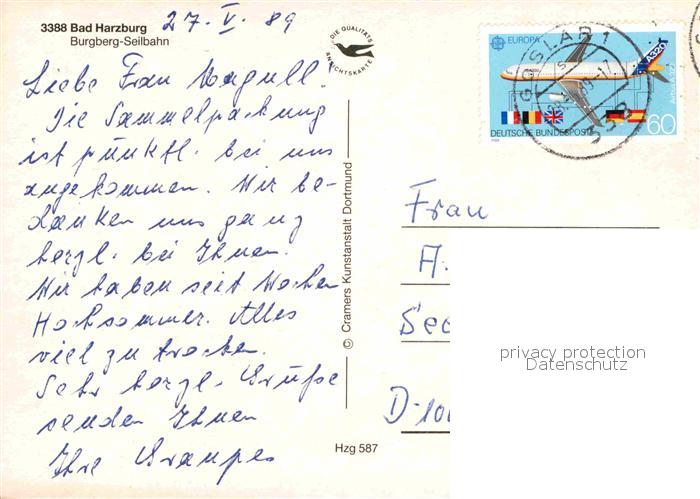 3388 Bad Harzburg
Burgberg-Seilbahn
27. V. 89
DIE QUALITÄTS
ANSICHTSKARTE
Liebe Frau
Die Sammelpackung
ist pünktl. bei uns
angekommen. Wir be-
danken uns ganz
herzl. bei Ihnen.
Wir haben seit Wochen
Hochsommer. Alles
viel zu trocken.
Sehr herzl. Grüße
senden Ihnen
Ihre
© Cramers Kunstanstalt Dortmund
Hzg 587
EUROPA
A320
DEUTSCHE BUNDESPOST
60
GOSLAR 1
Frau
A.
See
D-100
privacy protection
Datenschutz